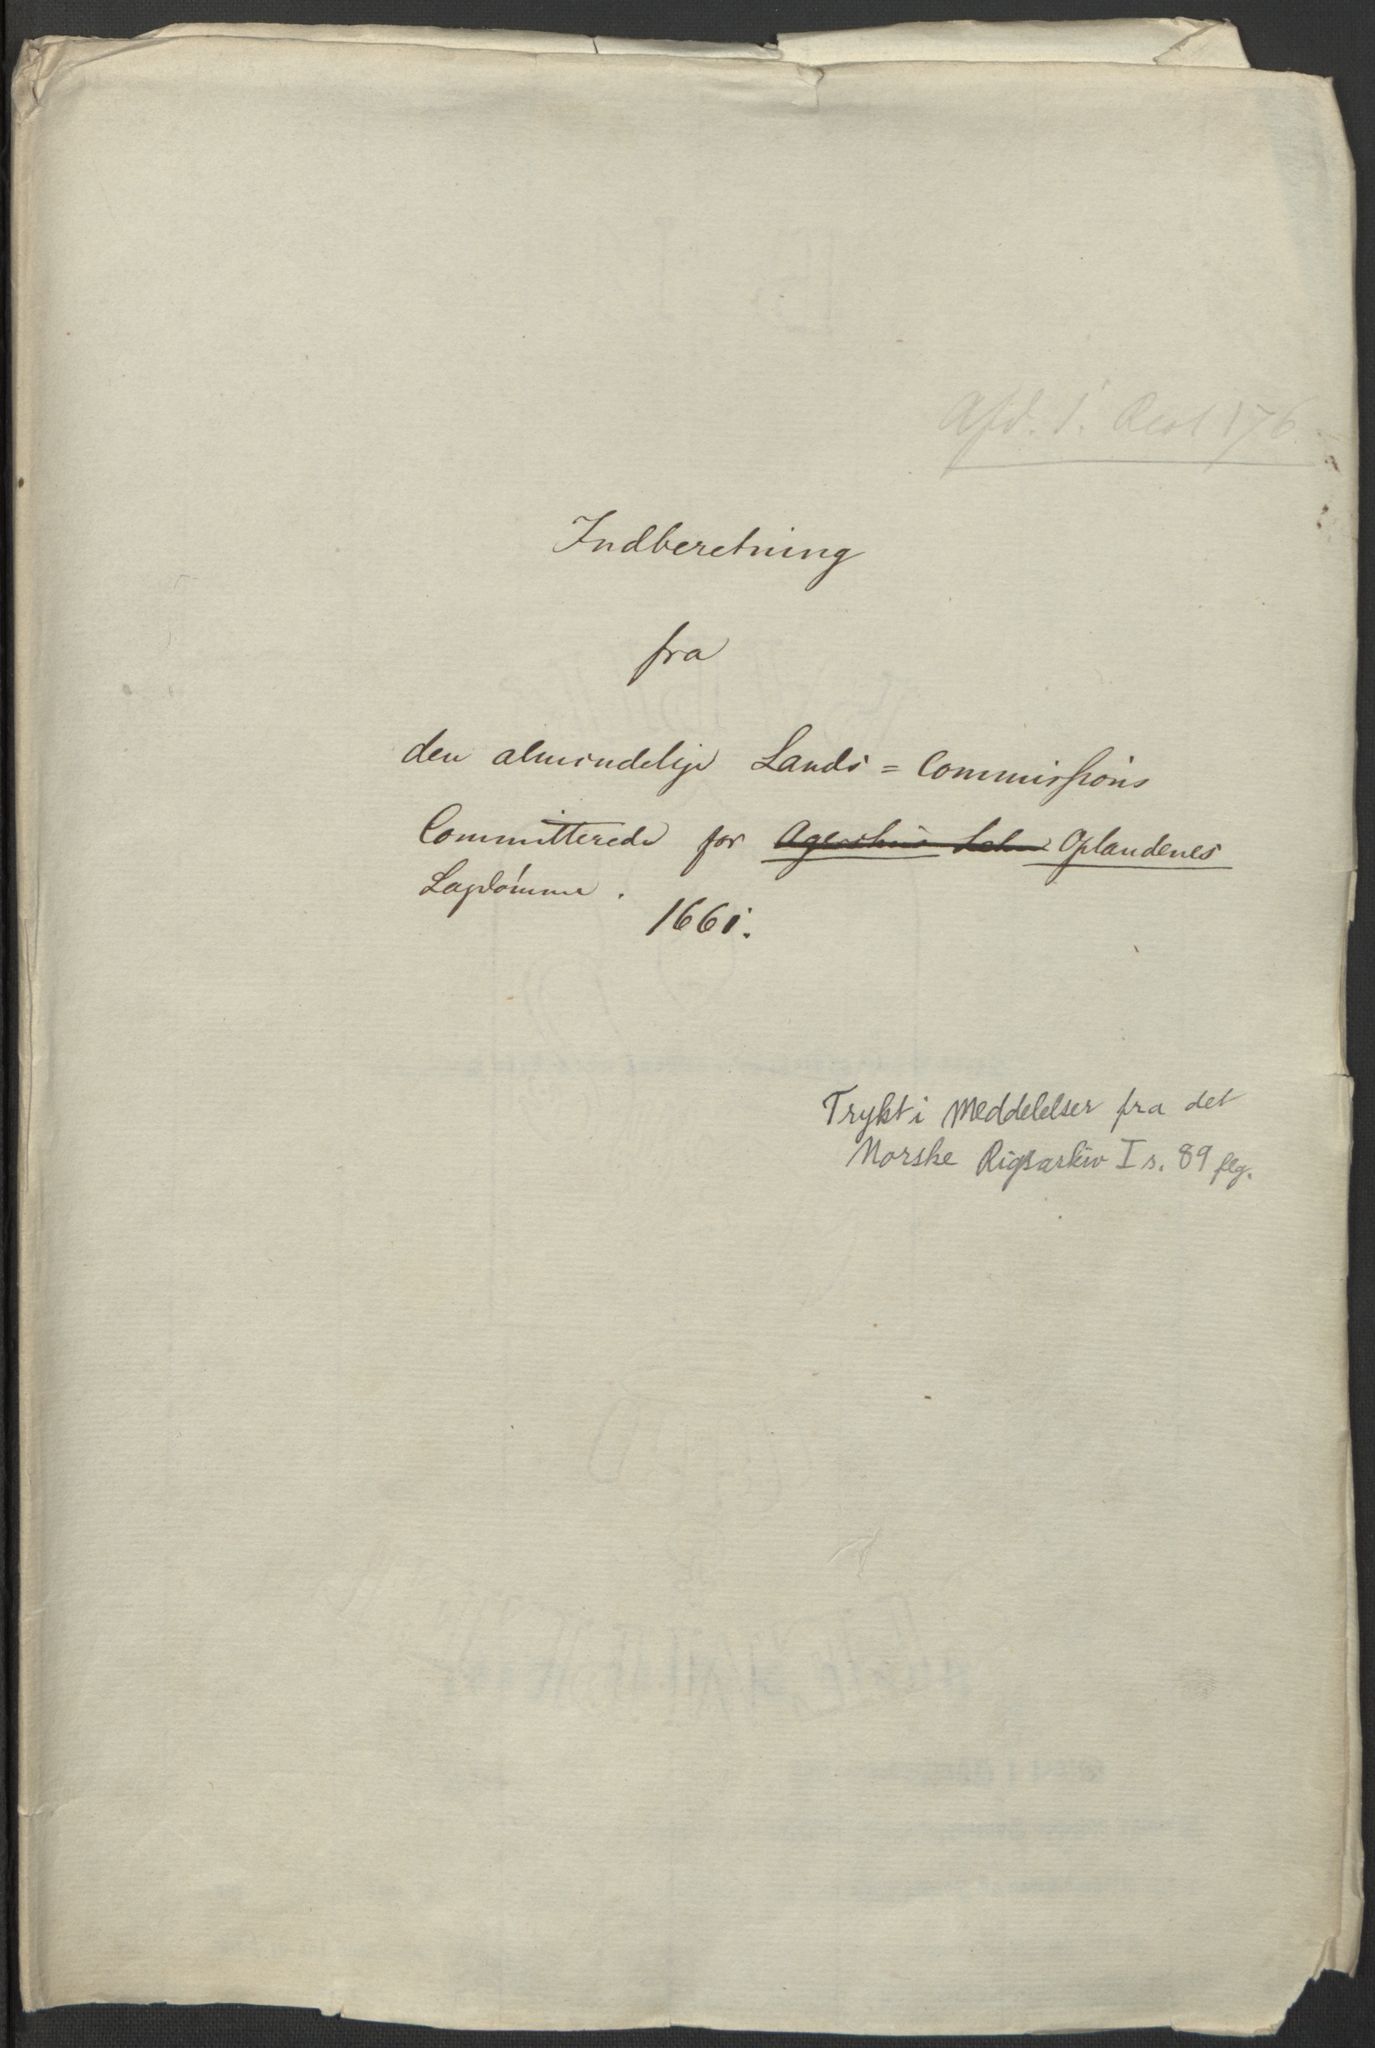 Afd. 1.
Indberetning
fra
den almindelige Lands = Commissions
Committerede for Agershus Lehn Oplandenes
Lagdømme.
1661.
Trykt i Meddelelser fra det
Norske Rigsarkiv I s. 89 flg.